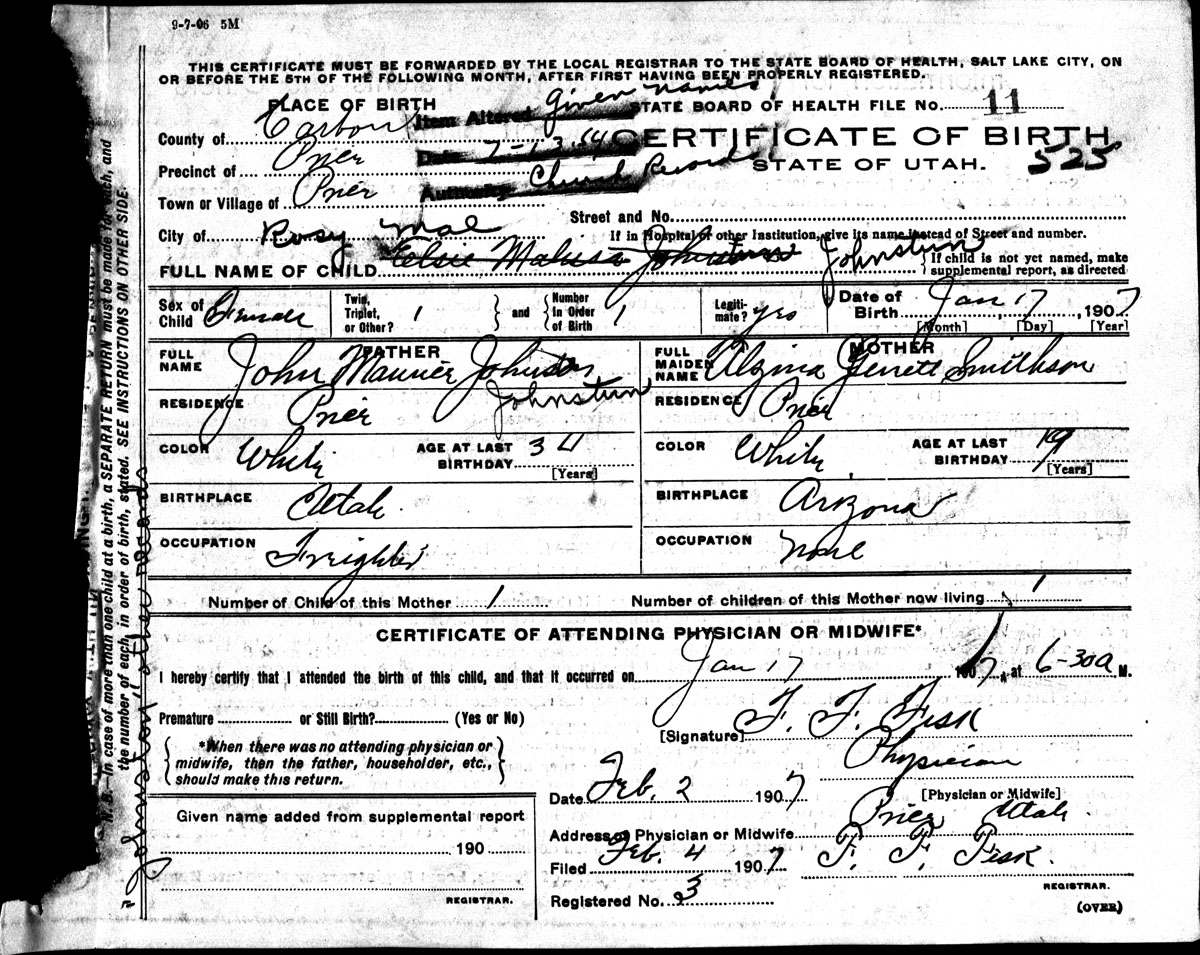 9-7-06 5M
THIS CERTIFICATE MUST BE FORWARDED BY THE LOCAL REGISTRAR TO THE STATE BOARD OF HEALTH, SALT LAKE CITY, ON
OR BEFORE THE 5TH OF THE FOLLOWING MONTH, AFTER FIRST HAVING BEEN PROPERLY REGISTERED.
PLACE OF BIRTH
Item Altered Given names
STATE BOARD OF HEALTH FILE No. 11
County of Carbon
Date 7-13-54
CERTIFICATE OF BIRTH
Precinct of Price
Authority Church Records
STATE OF UTAH. 525
Town or Village of Price
Street and No.
City of
If in Hospital or other Institution, give its name instead of Street and number.
Rosy Mae
FULL NAME OF CHILD Elsie Malissa Johnston Johnstun
If child is not yet named, make
supplemental report, as directed
Sex of Child Female
Twin, Triplet, or Other? 1
and
Number In Order of Birth 1
Legitimate? Yes
Date of Birth Jan 17, 1907
[Month] [Day] [Year]
FATHER
FULL NAME John Maurice Johnston
Johnstun
RESIDENCE Price
COLOR White AGE AT LAST BIRTHDAY 34
[Years]
BIRTHPLACE Utah
OCCUPATION Freighter
MOTHER
FULL MAIDEN NAME Alzina Smithson
RESIDENCE Price
COLOR White AGE AT LAST BIRTHDAY 19
[Years]
BIRTHPLACE Arizona
OCCUPATION None
Number of Child of this Mother 1 Number of children of this Mother now living 1
CERTIFICATE OF ATTENDING PHYSICIAN OR MIDWIFE*
I hereby certify that I attended the birth of this child, and that it occurred on Jan 17 1907, at 6-30a M.
Premature or Still Birth? (Yes or No)
[Signature] F. F. Fisk
*When there was no attending physician or
midwife, then the father, householder, etc.,
should make this return.
Physician
[Physician or Midwife]
Date Feb. 2 1907
Address of Physician or Midwife Price Utah
Given name added from supplemental report
190
REGISTRAR.
Filed Feb. 4 1907 F. F. Fisk.
REGISTRAR.
Registered No. 3
(OVER)
N. B.—In case of more than one child at a birth, a SEPARATE RETURN must be made for each, and
the number of each, in order of birth, stated. SEE INSTRUCTIONS ON OTHER SIDE
"Johnstun" other records